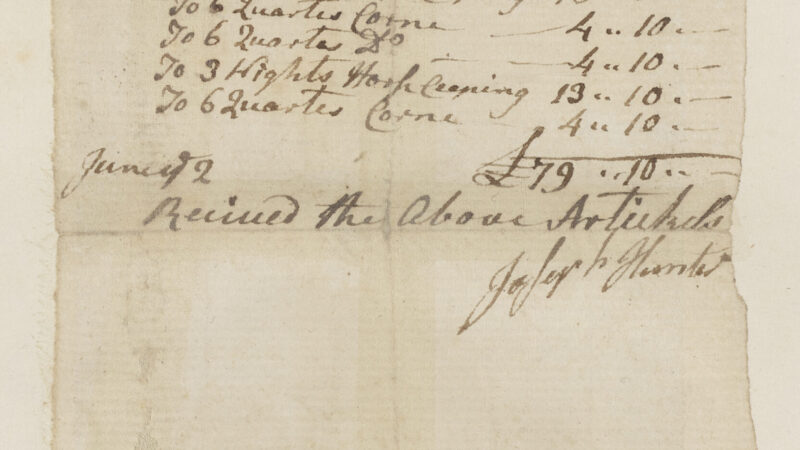 To 6 Quartes Corne — 4 " 10 " —
To 6 Quartes Do — 4 " 10 " —
To 3 Nights Hors Ceeping 13 " 10 " —
To 6 Quartes Corne — 4 " 10 " —
£79 " 10 " —
June ye 2
Reciued the Above Artickels
Joseph Hunter